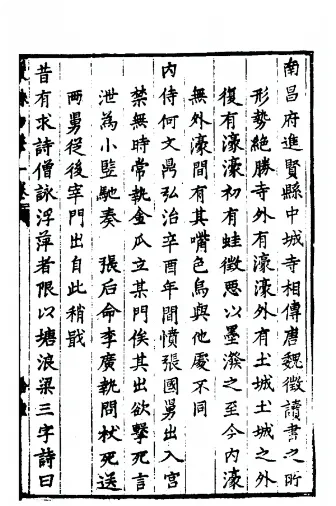 南昌府進賢縣中城寺相傳唐魏徵讀書之所
形勢絶勝寺外有濠濠外有土城土城之外
復有濠濠初有蛙徵惡以墨潑之至今内濠
無外濠間有其嘴色烏與他處不同
内侍何文鼎弘治辛酉年間憤張國舅出入宫
禁無時常執金瓜立某門俟其出欲擊死言
泄為小監馳奏 張后命李廣執問杖死送
两舅從後宰門出自此稍戢
昔有求詩僧詠浮萍者限以塘浪梁三字詩曰